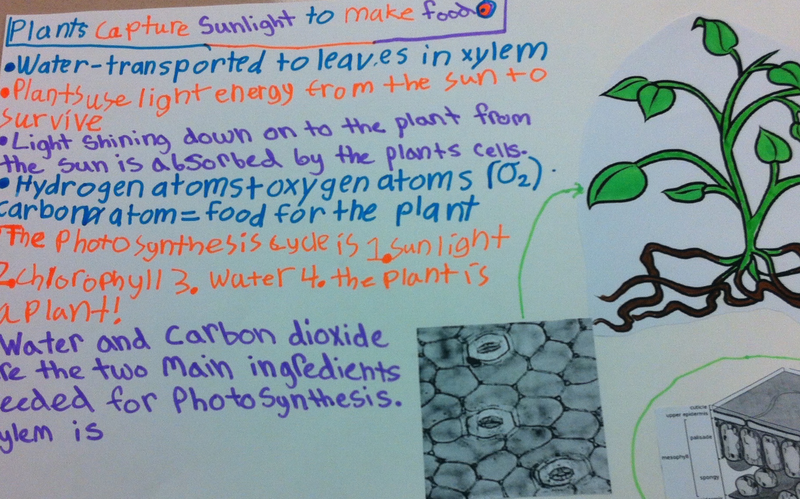 Plants Capture Sunlight to make food
•Water-transported to leaves in xylem
•Plants use light energy from the sun to
survive
•Light shining down on to the plant from
the sun is absorbed by the plants cells.
•Hydrogen atoms + oxygen atoms (O2).
carbon atom = food for the plant
The Photosynthesis Cycle is 1. sunlight
2. Chlorophyll 3. Water 4. the plant is
a plant!
Water and Carbon dioxide
re the two main ingredients
eeded for Photosynthesis.
ylem is
cuticle
upper epidermis
palisade
mesophyll
spongy